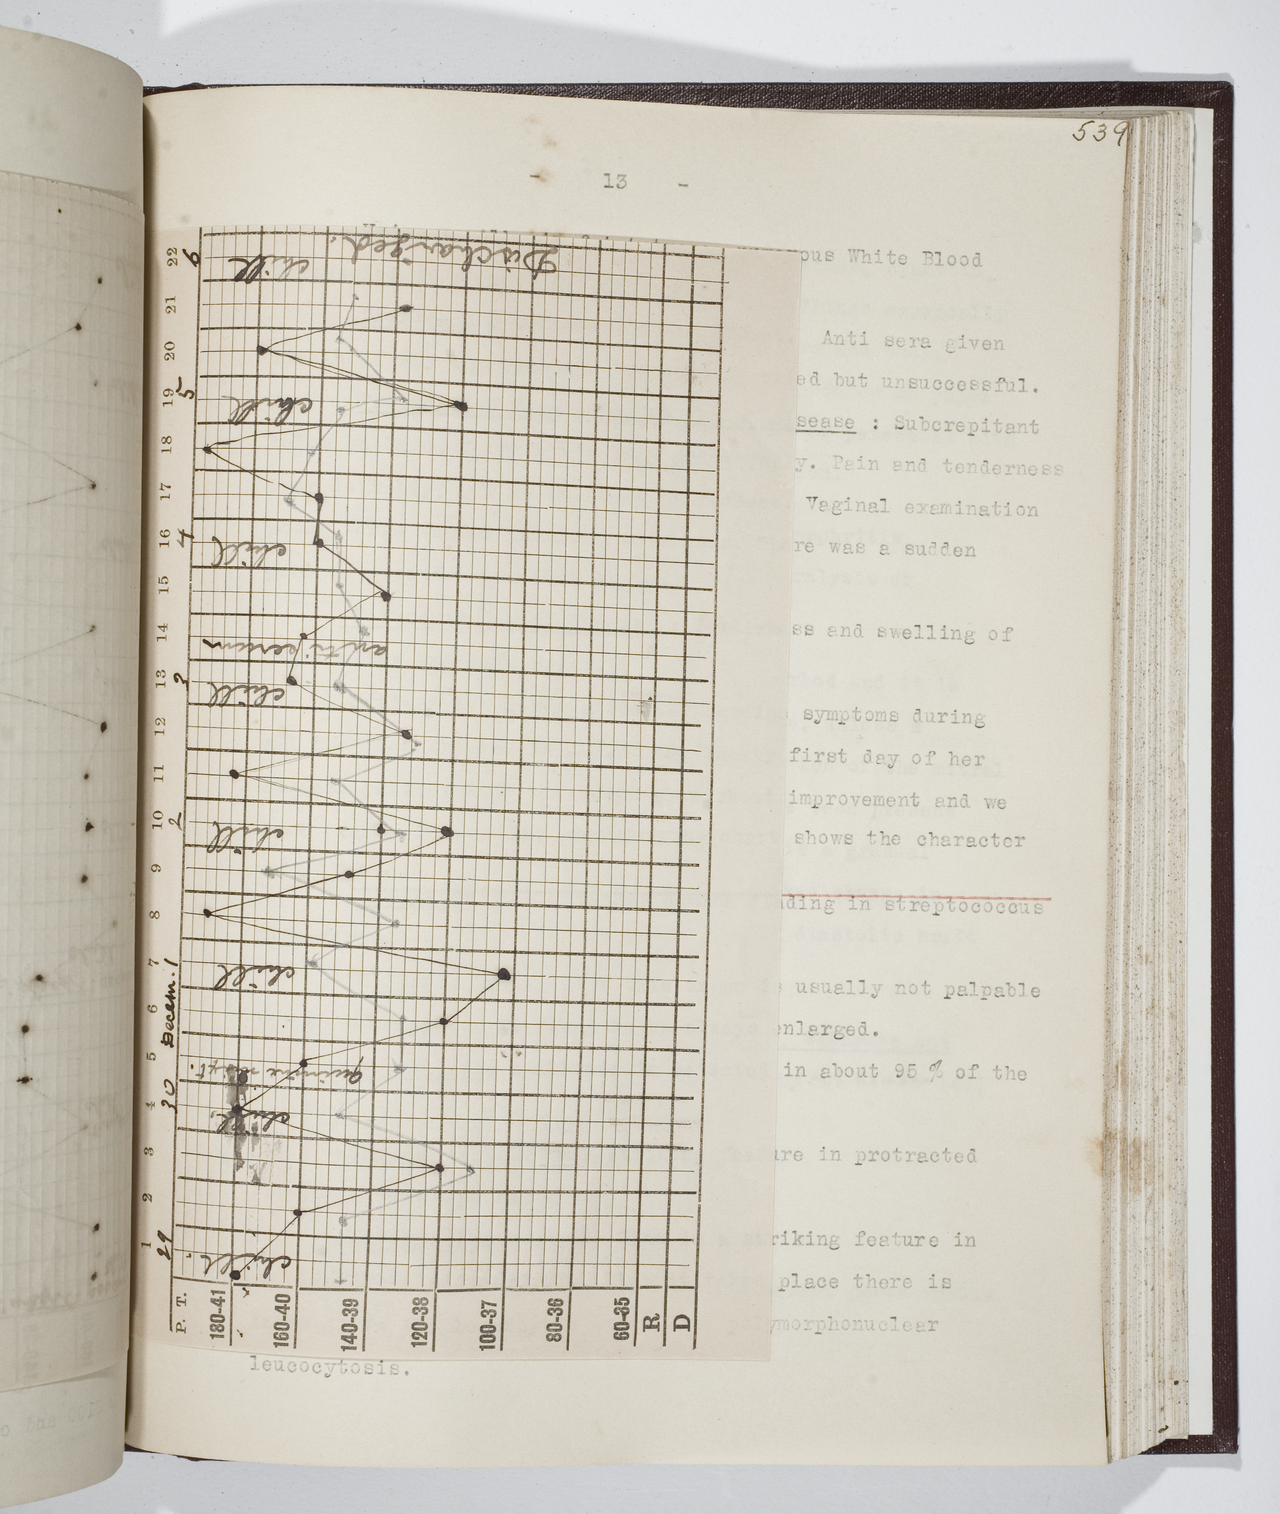 539
- 13 -
ous White Blood
Anti sera given
ed but unsuccessful.
sease : Subcrepitant
y. Pain and tenderness
Vaginal examination
re was a sudden
ss and swelling of
symptoms during
first day of her
improvement and we
shows the character
ding in streptococcus
usually not palpable
enlarged.
in about 95 % of the
ure in protracted
riking feature in
place there is
ymorphonuclear
leucocytosis.
P. T. 1 2 3 4 5 6 7 8 9 10 11 12 13 14 15 16 17 18 19 20 21 22
29 30 Decem. 1 2 3 4 5 6
180-41
160-40
140-39
120-38
100-37
80-36
60-35
R
D
chill.
chill.
quinine
chill
chill
chill
anti serum
chill
chill
chill
Discharged.